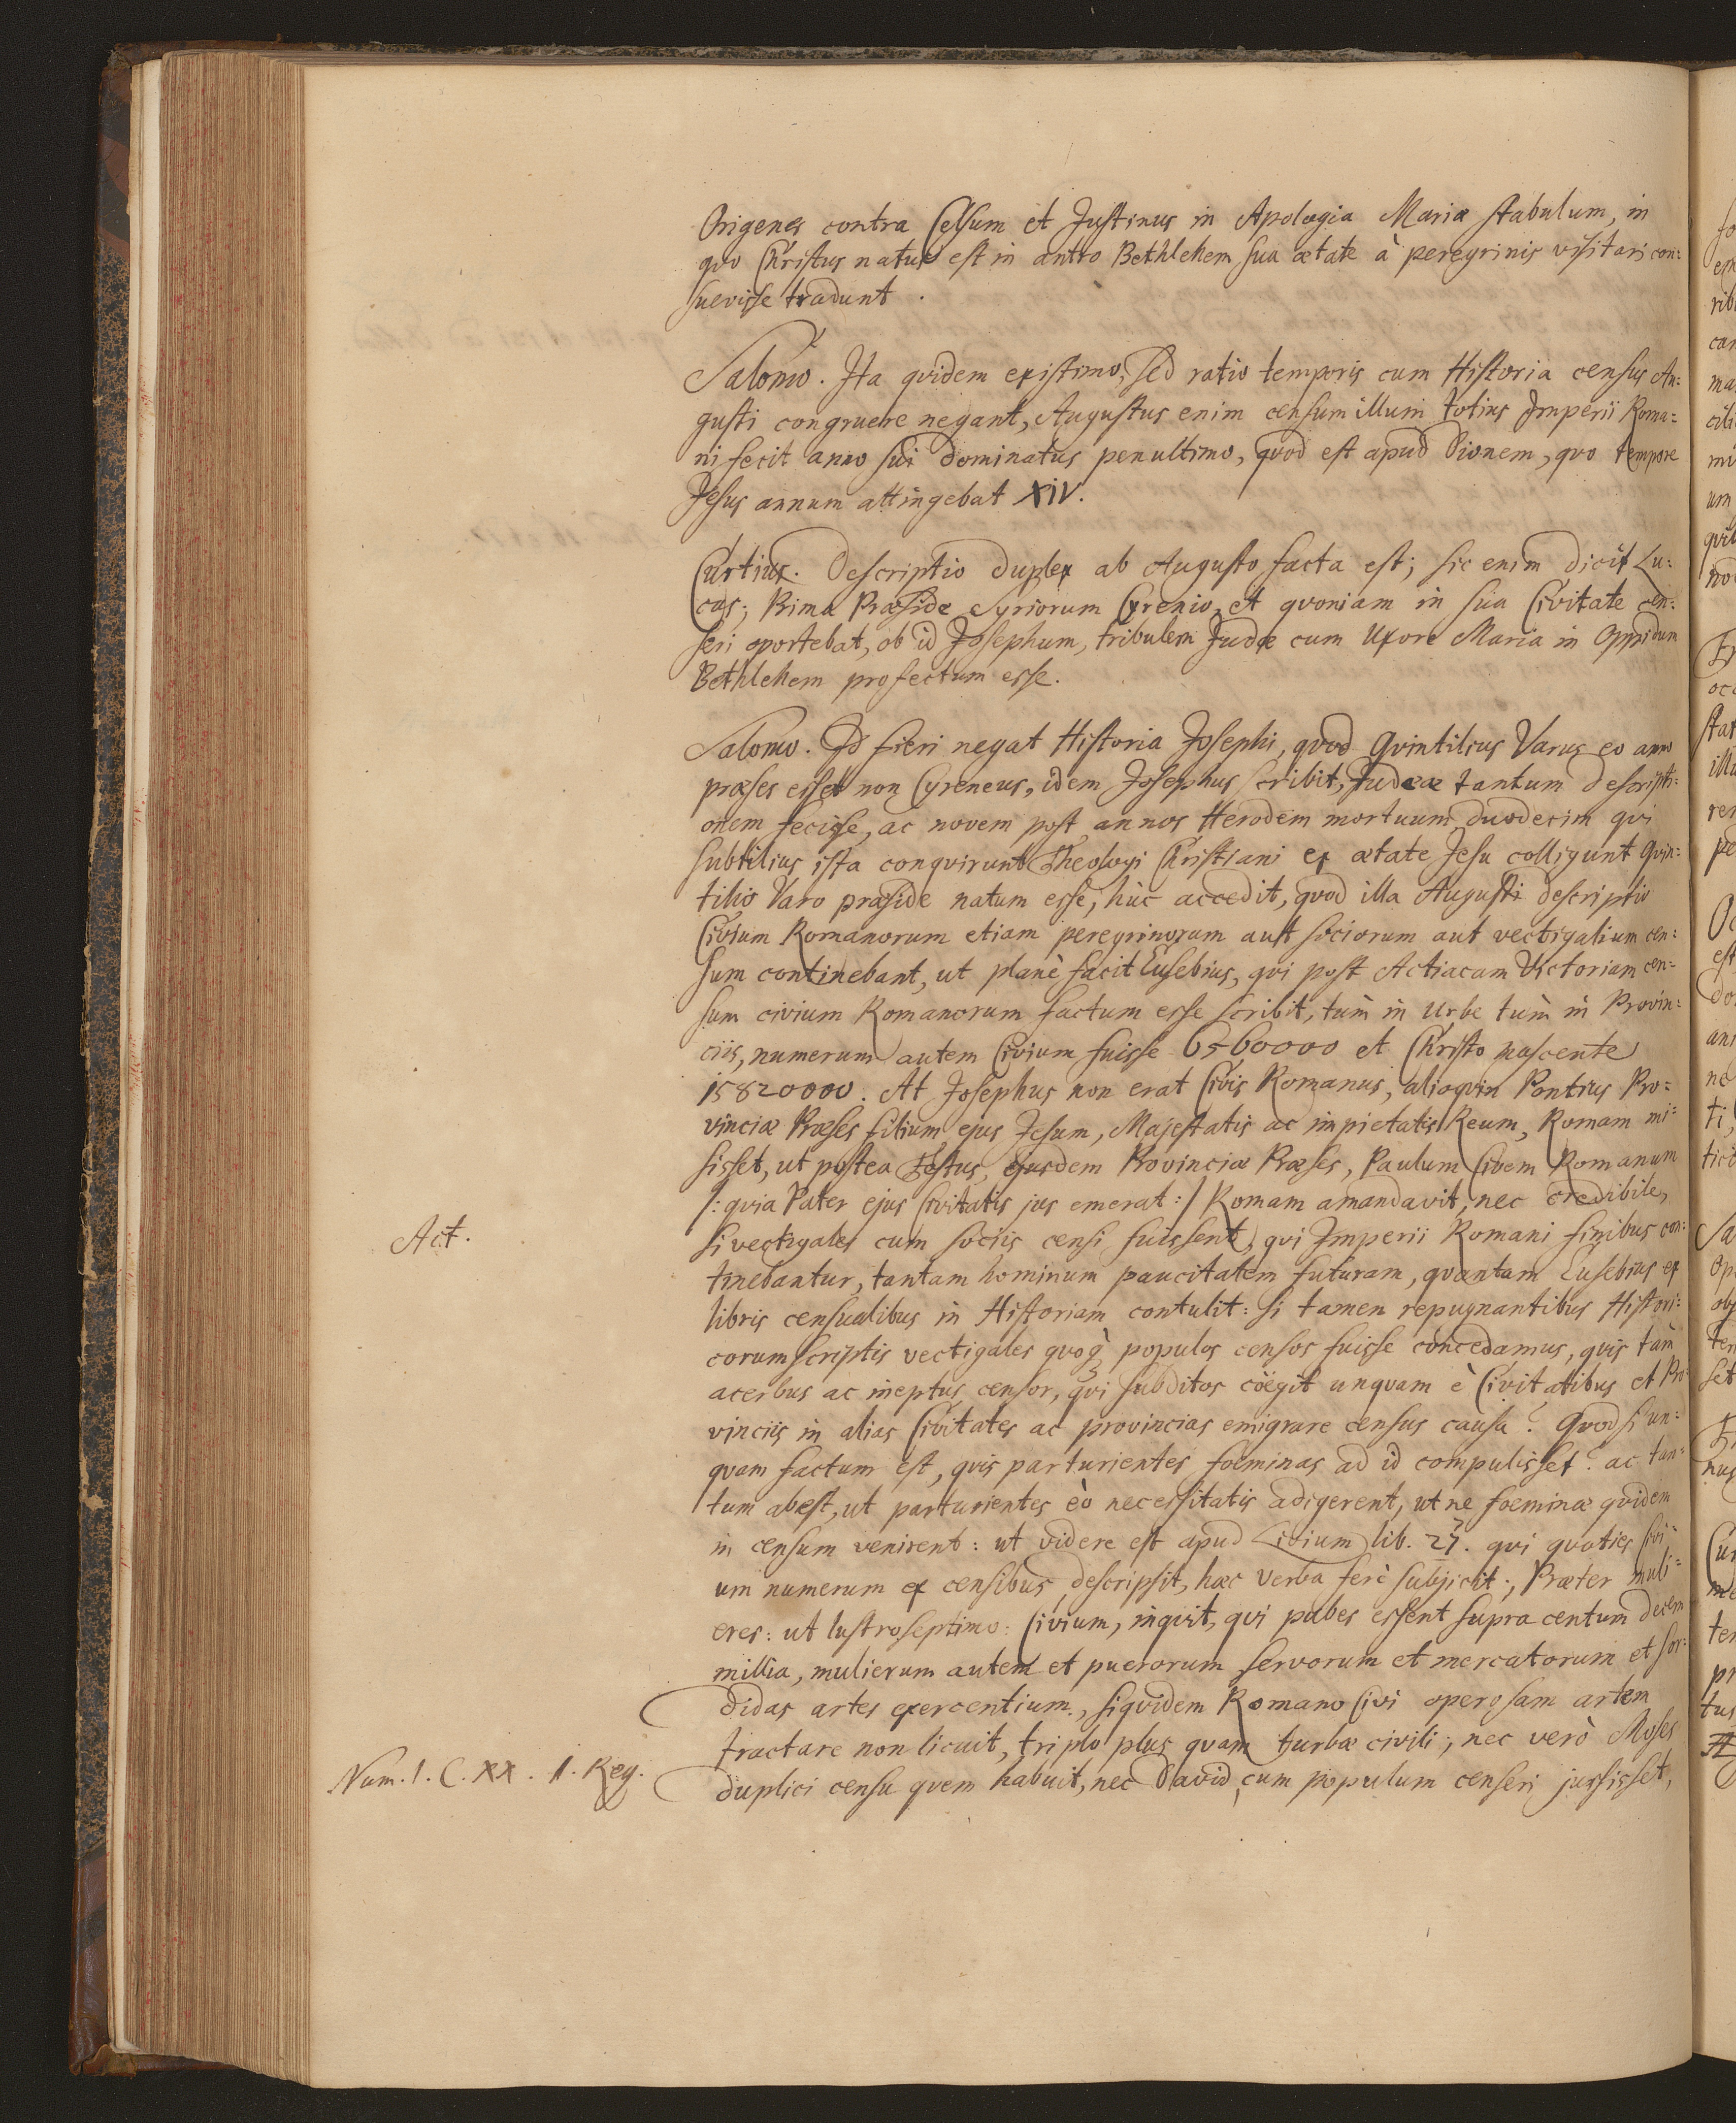 Origenes contra Celsum et Justinus in Apologia Mariæ stabulum, in
qvo Christus natus est in antro Bethlehem sua ætate à peregrinis visitari con:
suevisse tradunt.
Salomo. Ita qvidem existimo, sed ratio temporis cum Historia census Au:
gusti congruere negant, Augustus enim censum illum totius Imperii Roma:
ni fecit anno sui dominatus penultimo, qvod est apud Dionem, qvo tempore
Jesus annum attingebat XIV.
Curtius. Descriptio duplex ab Augusto facta est; sic enim dicit Lu:
cas; Prima Præside Syriorum Cyrenio, et qvoniam in sua Civitate cen:
seri oportebat, ob id Josephum, tribulem Judæ cum Uxore Maria in Oppidum
Bethlehem profectum esse.
Salomo. Id fieri negat Historia Josephi, qvod Qvintilius Varus eo anno
præses esset non Cyreneus, idem Josephus scribit, Judææ tantum descripti:
onem fecisse, ac novem post annos Herodem mortuum, duodecim qvi
subtilius ista conqvirunt Theologi Christiani ex ætate Jesu colligunt Qvin:
tilio Varo præside natum esse, hùc accedit, qvod illa Augusti descriptio
Civium Romanorum etiam peregrinorum aut sociorum aut vectigalium cen:
sum continebant, ut planè facit Eusebius, qvi post Actiacam Victoriam cen:
sum civium Romanorum factum esse scribit, tùm in Urbe tùm in Provin:
ciis, numerum autem Civium fuisse 6560000 et Christo nascente
15820000. At Josephus non erat Civis Romanus, alioqvin Pontius Pro:
vinciæ Præses filium ejus Jesum, Majestatis ac impietatis Reum, Romam mi:
sisset, ut postea Festus, ejusdem Provinciæ Præses, Paulum Civem Romanum
/: qvia Pater ejus Civitatis jus emerat :/ Romam amandavit, nec credibile,
Act.
si vectigales cum sociis censi fuissent, qvi Imperii Romani finibus con:
tinebantur, tantam hominum paucitatem futuram, qvantam Eusebius ex
libris censualibus in Historiam contulit: Si tamen repugnantibus Histori:
corum scriptis vectigales qvoq; populos censos fuisse concedamus, qvis tàm
acerbus ac ineptus censor, qvi subditos cöegit unqvam è Civitatibus et Pro:
vinciis in alias Civitates ac provincias emigrare census causa? Qvod si un:
qvam factum est, qvis parturientes foeminas ad id compulisset? ac tan:
tum abest, ut parturientes eò necessitatis adigerent, ut ne foeminæ qvidem
in censum venirent: ut videre est apud Livium lib. 23. qvi qvoties Civi:
um numerum ex censibus descripsit, hæc verba ferè subjicit:, Præter muli:
eres: ut lustro septimo: Civium, inqvit, qvi pubes essent supra centum decem
millia, mulierum autem et puerorum servorum et mercatorum et sor:
didas artes exercentium, siqvidem Romano Civi operosam artem
tractare non licuit, triplo plus qvam turbæ civili; nec verò Moses
Num. 1. C. XX. 1. Reg.
duplici censu qvem habuit, nec David, cum populum censeri jussisset,